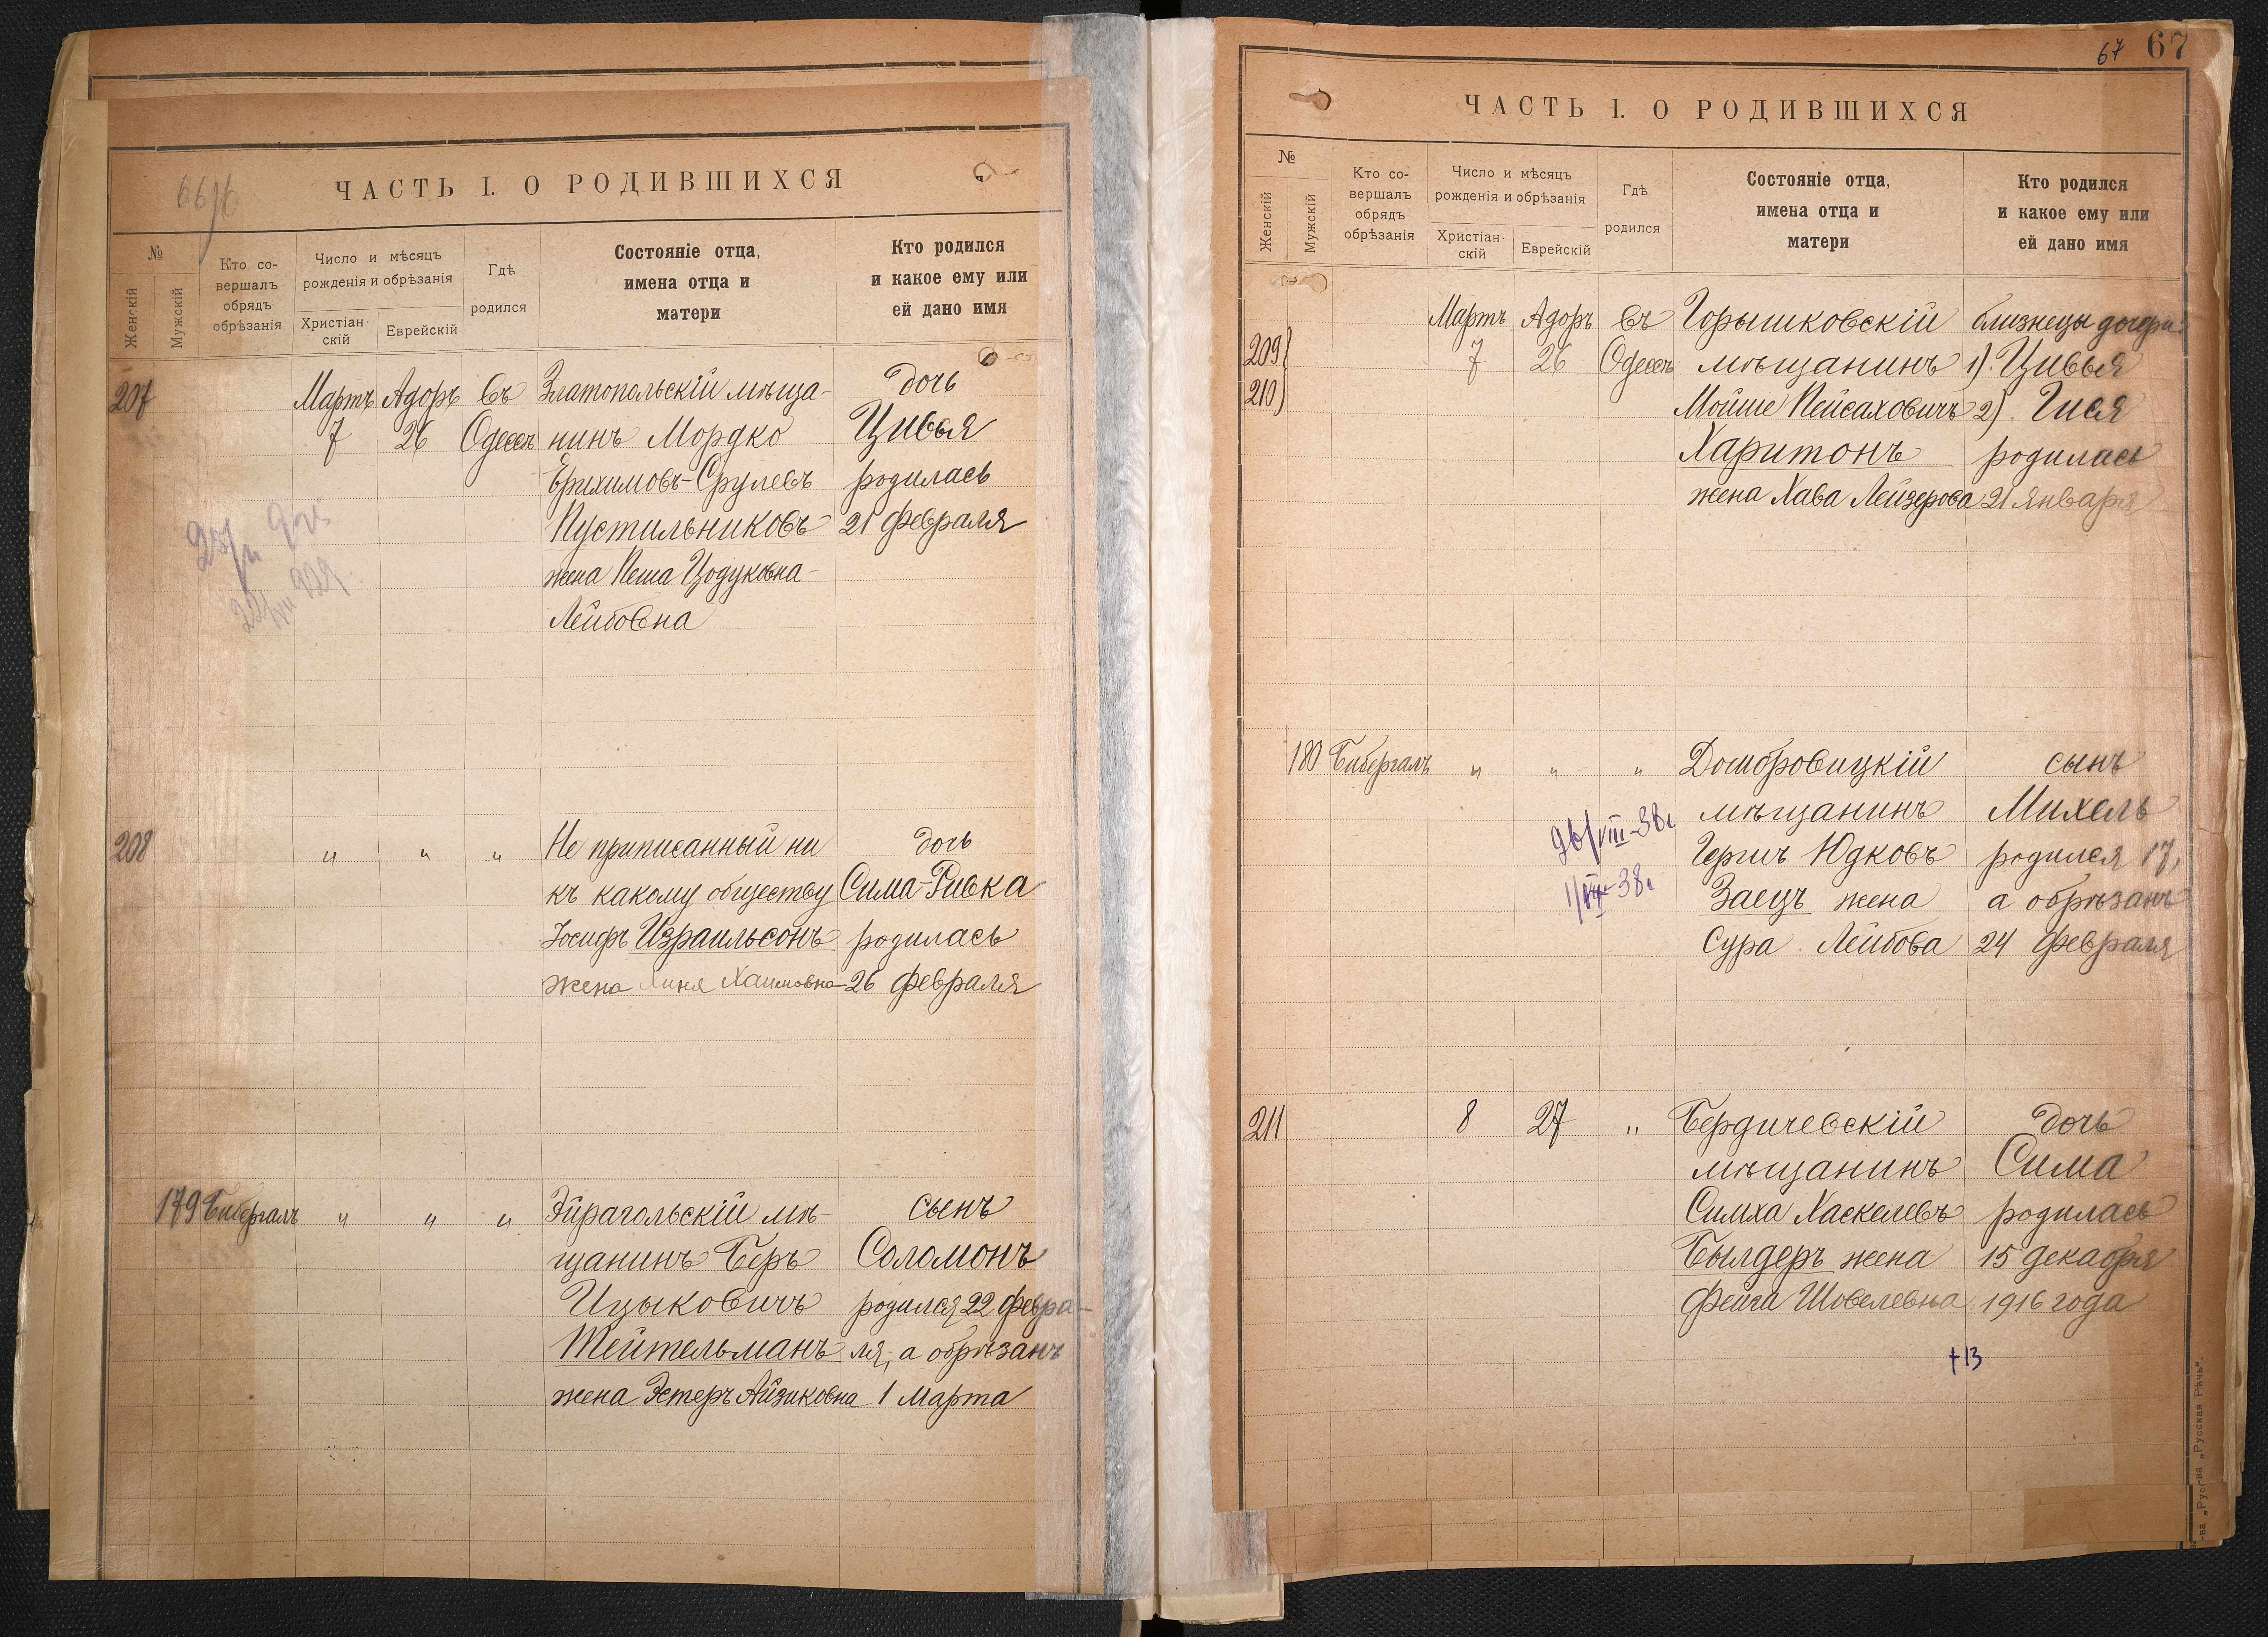 66 об
ЧАСТЬ I. О РОДИВШИХСЯ
№
Женскій
Мужскій
Кто со-
вершалъ
обрядъ
обрѣзанія
Число и мѣсяцъ
рожденія и обрѣзанія
Христіан-
скій
Еврейскій
Гдѣ
родился
Состояніе отца,
имена отца и
матери
Кто родился
и какое ему или
ей дано имя
207 Мартъ Адоръ въ Златопольскій мѣща- дочь
7 26 Одессѣ нинъ Мордко Цивья
Ерихимовъ-Срулевъ родилась
Пустильниковъ 21 февраля
жена Пеша Цодуковна-
Лейбовна
208 " " " Не приписанный ни дочь
къ какому обществу Сима-Ривка
Іосифъ Израильсонъ родилась
жена Хиня Хаимовна 26 февраля
179 Бибергалъ " " " Эйрагольскій мѣ- сынъ
щанинъ Беръ Соломонъ
Ицыковичъ родился 22 февра-
Тейтельманъ ля, а обрѣзанъ
жена Эстеръ Айзиковна 1 Марта
67 67
ЧАСТЬ I. О РОДИВШИХСЯ
№
Женскій
Мужскій
Кто со-
вершалъ
обрядъ
обрѣзанія
Число и мѣсяцъ
рожденія и обрѣзанія
Христіан-
скій
Еврейскій
Гдѣ
родился
Состояніе отца,
имена отца и
матери
Кто родился
и какое ему или
ей дано имя
Мартъ Адоръ въ Горышковскій близнецы дочери:
209} 7 26 Одессѣ мѣщанинъ 1). Цивья
210) Мойше Пейсаховичъ 2). Гися
Харитонъ родилась
жена Хава Лейзерова 21 Января
180 Бибергалъ " " " Домбровицкій сынъ
26/VIII-38г мѣщанинъ Михель
Гершъ Юдковъ родился 17,
1/IX-38г Заецъ жена а обрѣзанъ
Сура Лейбова 24 февраля
211 8 27 " Бердичевскій дочь
мѣщанинъ Сима
Симха Хаскелевъ родилась
Былдеръ жена 15 декабря
Фейга Шовелевна 1916 года
+13
-ва „Рус-ва „Русская Рѣчь“.